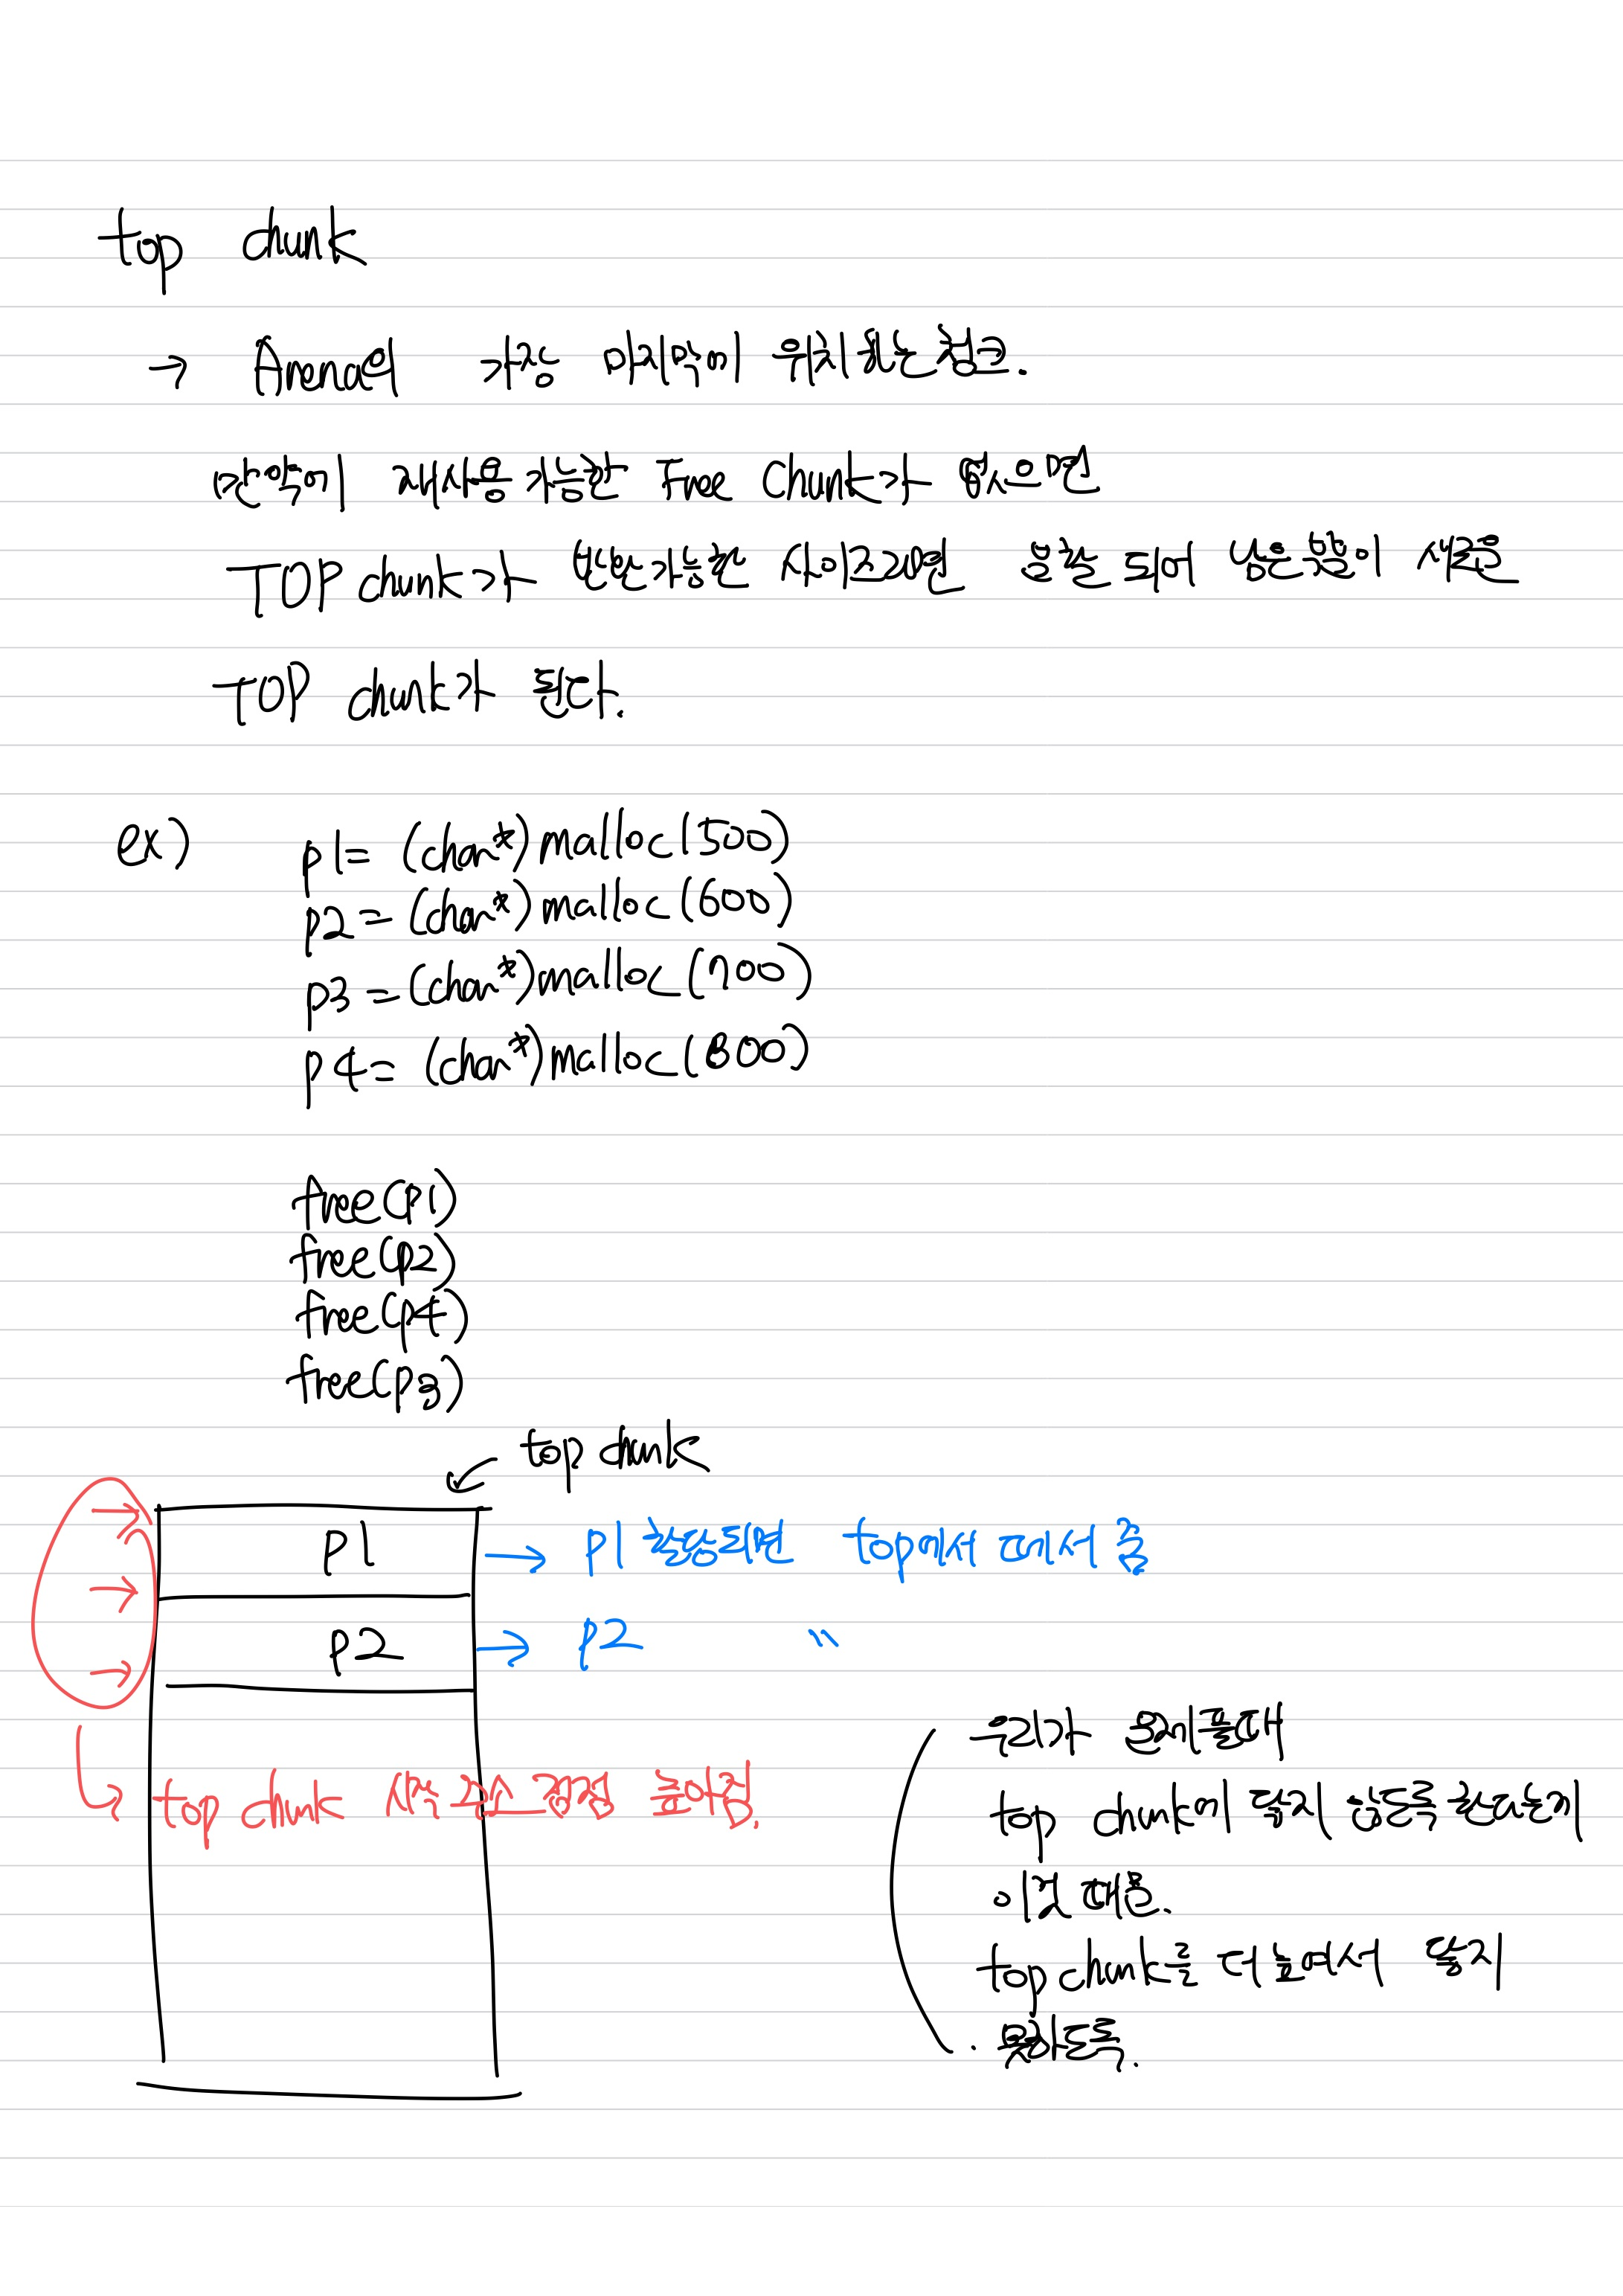 top chunk
→ Arena의 가장 마지막에 위치하는 청크.
만약에 재사용가능한 free chunk가 없으면
TOP chunk가 반환가능한 사이즈라면 분할 되어 남은부분이 새로운
TOP chunk가 된다.
ex) p1= (char*)malloc(500)
p2= (char*)malloc(600)
p3=(char*)malloc(700)
p4= (char*)malloc(800)
free(p1)
free(p2)
free(p4)
free(p3)
top chunk
p1 → p1 할당되면 top에서 떼어서 줌
p2 → p2 〃
top chunk 생성 장소 경계 늘어남.
우리가 문제 풀때
top chunk에 붙지 않도록 한다는게
이것 때문.
top chunk를 더 늘려서 붙지
못하도록.